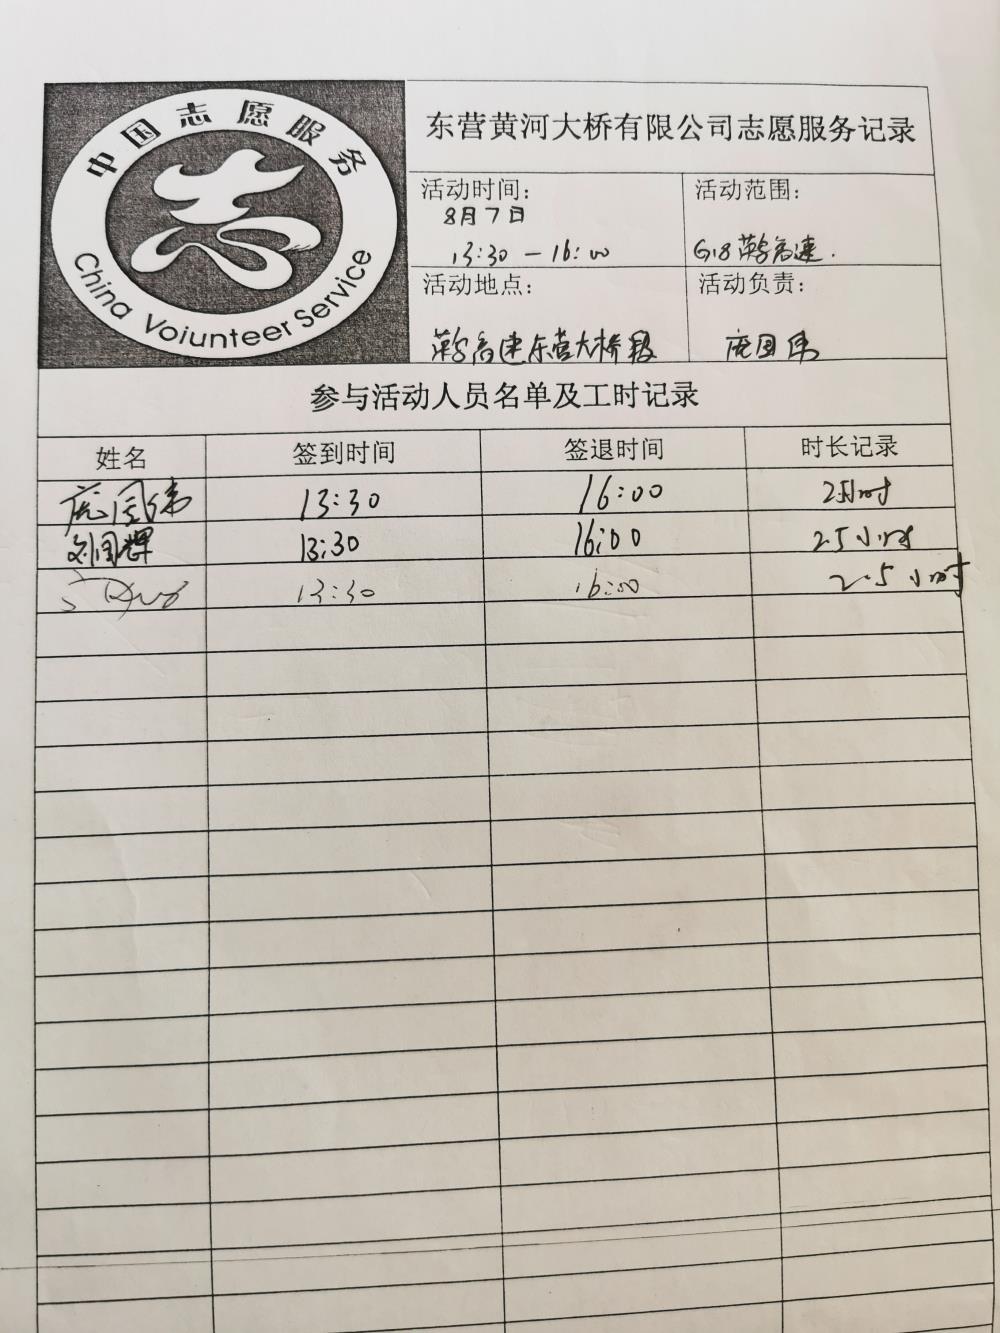 中国志愿服务
China Voiunteer Service
东营黄河大桥有限公司志愿服务记录
活动时间:
8月7日
13:30 — 16:00
活动范围:
G18荣乌高速.
活动地点:
荣乌高速东营大桥段
活动负责:
庞国伟
参与活动人员名单及工时记录
姓名 签到时间 签退时间 时长记录
庞国伟 13:30 16:00
刘国辉 13:30 16:00 2.5小时
13:30 16:00 2.5小时